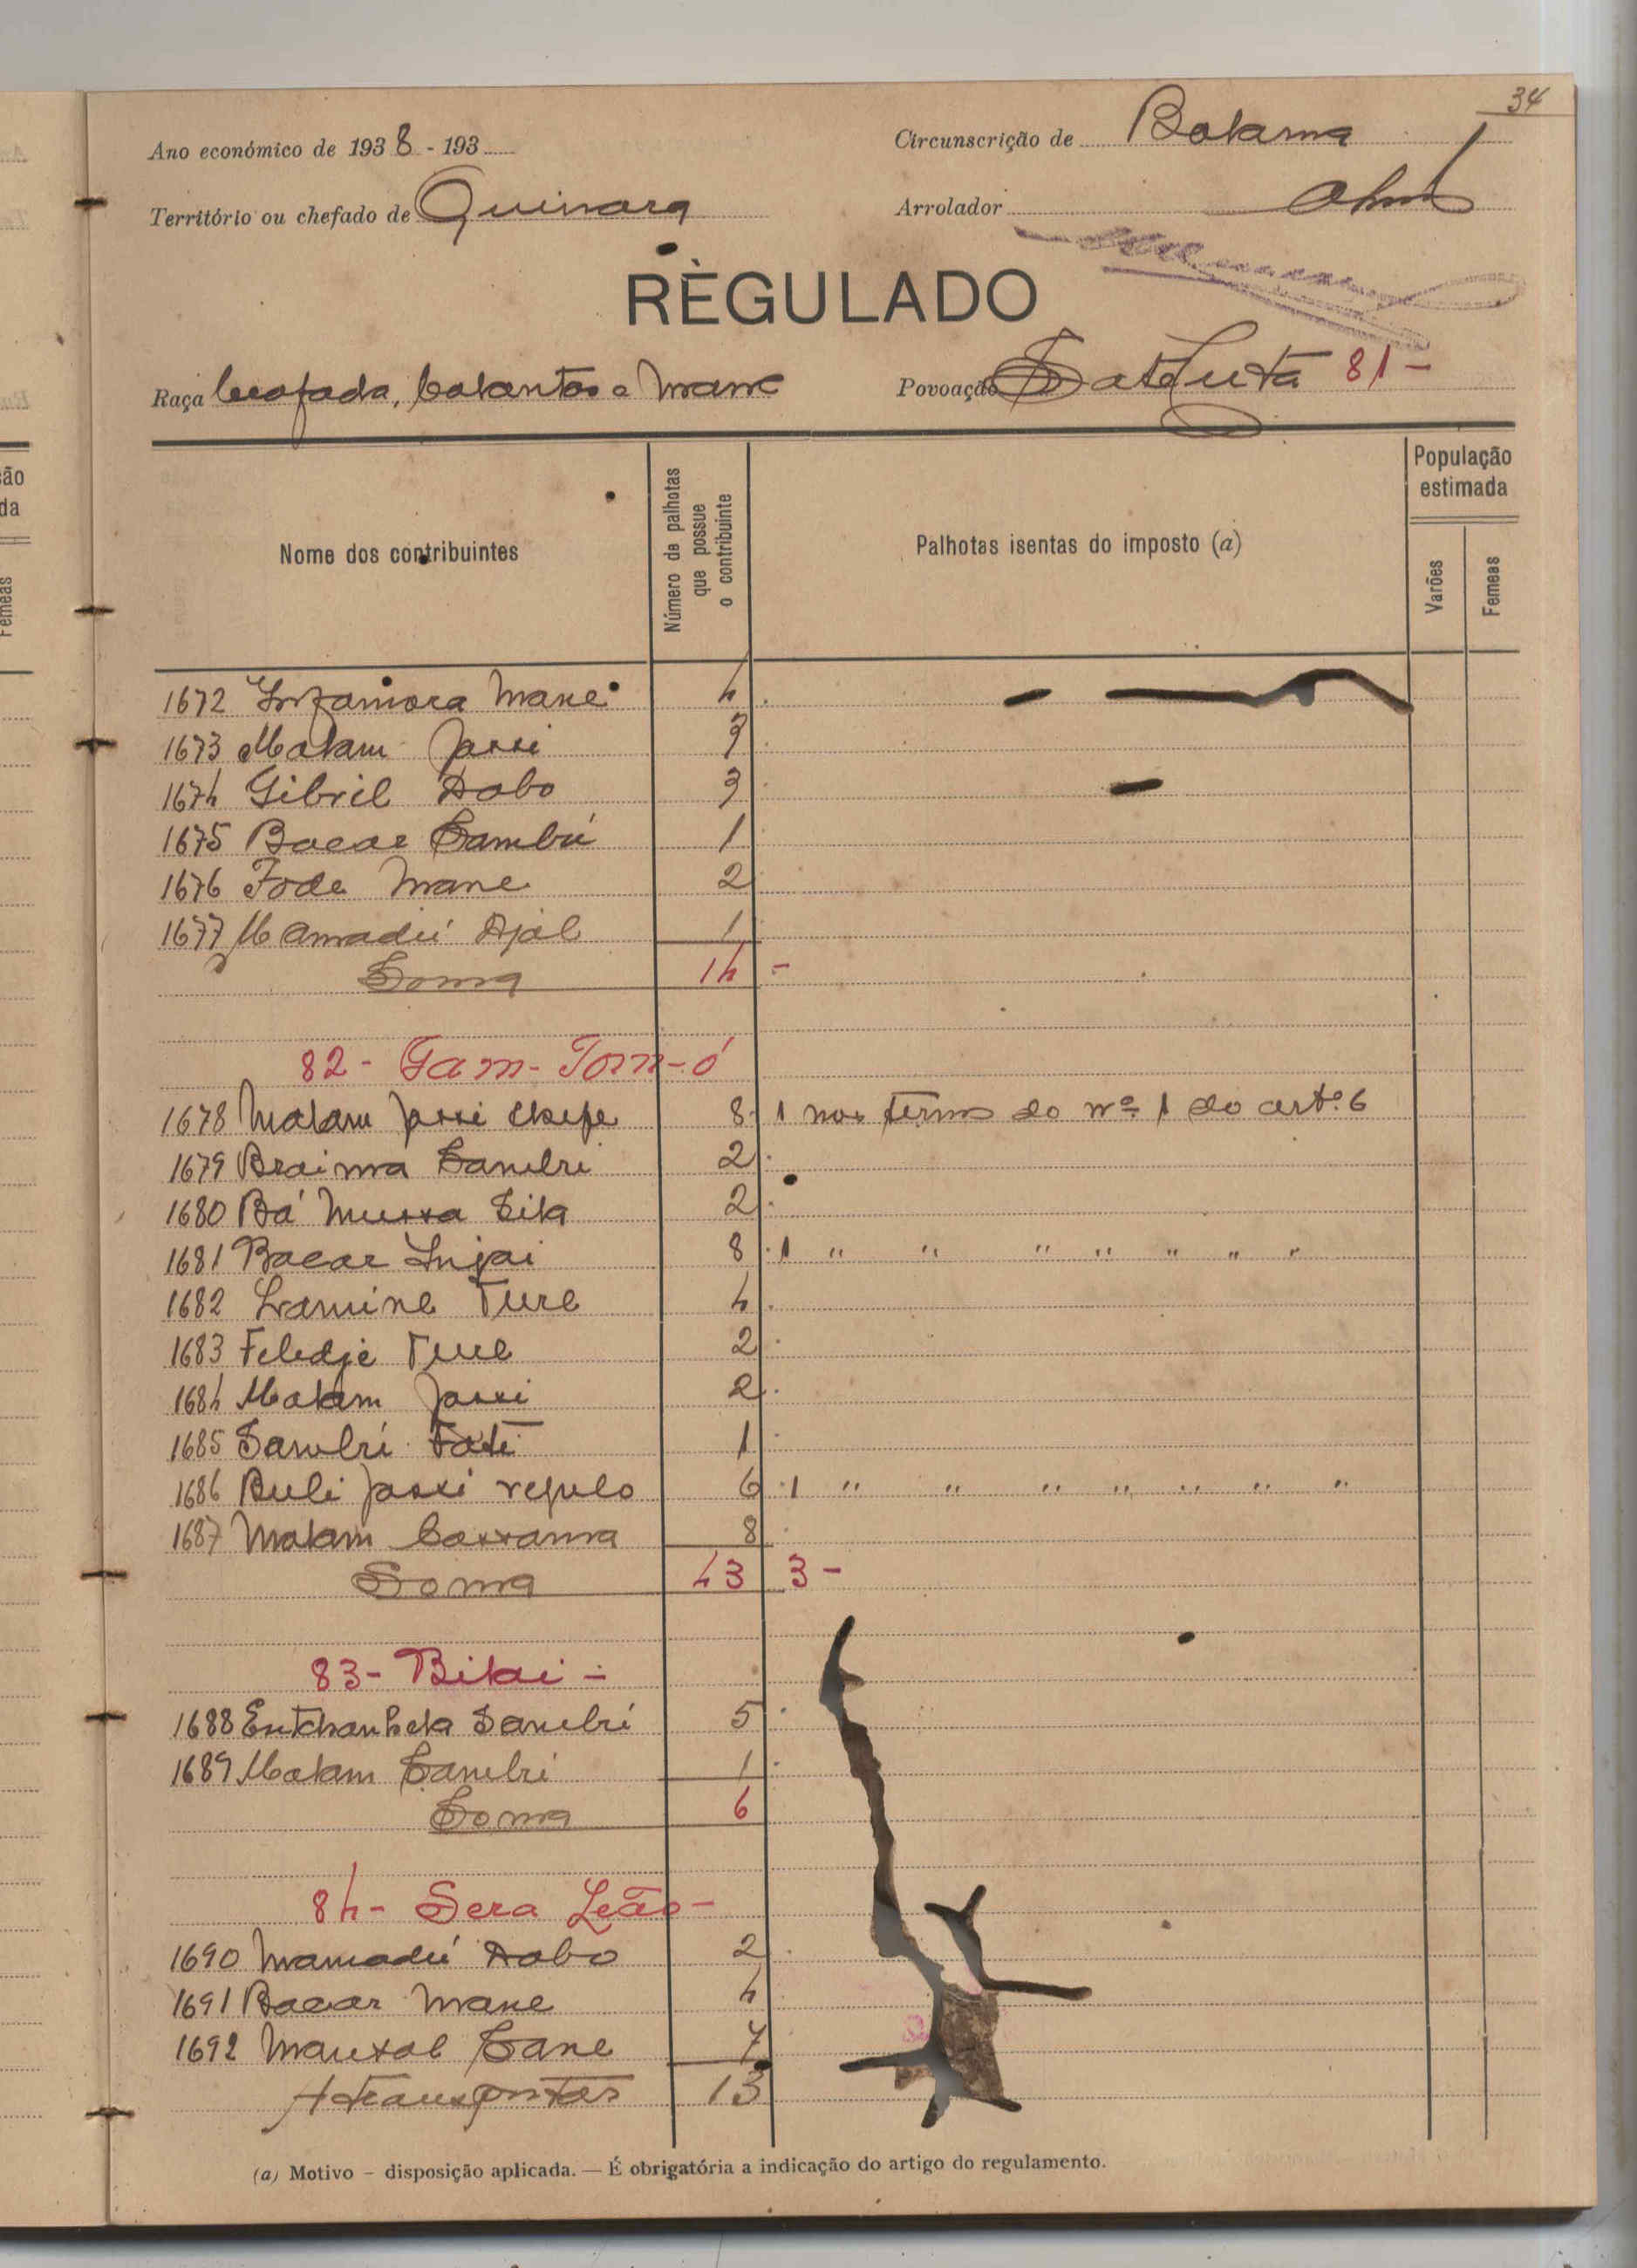 34
Ano económico de 1938 - 193
Circunscrição de Bolama
Território ou chefado de Quinara
Arrolador
RÈGULADO
Raça beafada, balantas e mane
Povoação 81 -
Nome dos contribuintes
Número de palhotas que possue o contribuinte
Palhotas isentas do imposto (a)
População estimada
Varões
Femeas
1672 Infamara Mane 4
1673 Malam Jassi 3
1674 Gibril Dabo 3
1675 Bacar Sambú 1
1676 Fode Mane 2
1677 Mamadú Djal 1
Soma 14 -
82 - Gam-Tom-ó
1678 Malam Jassi chefe 8 1 nos termos do nº 1 do artº 6
1679 Braima Sambú 2
1680 Bá Mussa Sila 2
1681 Bacar Injai 8 1 " " " " " " "
1682 Lamine Ture 4
1683 Feledje Ture 2
1684 Malam Jassi 2
1685 Sambú Fati 1
1686 Buli Jassi regulo 6 1 " " " " " " "
1687 Malam Cassama 8
Soma 43 3 -
83 - Bilai -
1688 Sambú 5
1689 Malam Sambú 1
Soma 6
84 - Sera Leão -
1690 Mamadú Dabo 2
1691 Bacar Mane 4
1692 Sane 7
A transportar 13
(a) Motivo – disposição aplicada. — É obrigatória a indicação do artigo do regulamento.